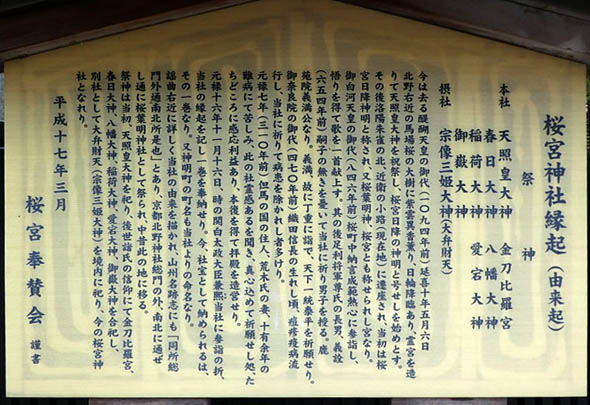 桜宮神社縁起(由来起)
祭神
本社 天照皇大神 金刀比羅宮
春日大神 八幡大神
稲荷大神 愛宕大神
御嶽大神
摂社 宗像三姫大神(大弁財天)
今は去る醍醐天皇の御代(一〇九四年前)延喜十年五月六日
北野右近の馬場桜の大樹に紫雲異香薫り、日輪降臨あり、霊宮を造
りて天照皇大神を祝祭し、桜宮日降の神明と号せしを始めとす。
その後洛陽朱雀の北、近衛の小路(現在地)に遷座され、当初は桜
宮日降神明と称され、又桜葉明神、桜宮とも称せられし宮なり。
御白河天皇の御代(八四六年前)桜町中納言成範熱心に参詣し、
悟りを得て歌を一首献上す。其の後足利将軍尊氏の長男、義詮
(六五四年前)嗣子の無きを憂いて当社に祈り男子を授る。鹿
苑院義満公なり。義満、故に丁重に詣で、天下一統泰平を祈願せり。
御奈良院の御代(四七〇年前)織田信長の生れし頃、痘疹疫病流
行し、当社に祈りて病患を除かれし者多けり。
元禄七年(三一〇年前)但馬の国の住人、荒木氏の妻、十有余年の
難病にて苦しみ、此の社霊感あるを聞き、真心込めて祈願せし処た
ちどころに感応利益あり、本復を得て拝殿を造営せり。
元禄十六年十一月十六日、時の関白太政大臣兼熙当社に参詣の折、
当社の縁起を記し一巻を奉納せり。今、社宝として納められるは、
その一巻なり。又神明町の町名も当社よりの命名なり。
謡曲右近に詳しく当社の由来を描かれ、山州名跡志にも「同所総
門外通南北所是也」とあり、京都北野神社総門の外、南北に通ぜ
し通に桜葉明神として祭られ、中昔此の地に移る。
祭神は当初、天照皇大神を祀り、後世諸氏の信仰にて金刀比羅宮、
春日大神、八幡大神、稲荷大神、愛宕大神、御嶽大神を合祀し、
別社として大弁財天(宗像三姫大神)を境内に祀り、今の桜宮神
社となれり。
平成十七年三月
桜宮奉賛会 謹書